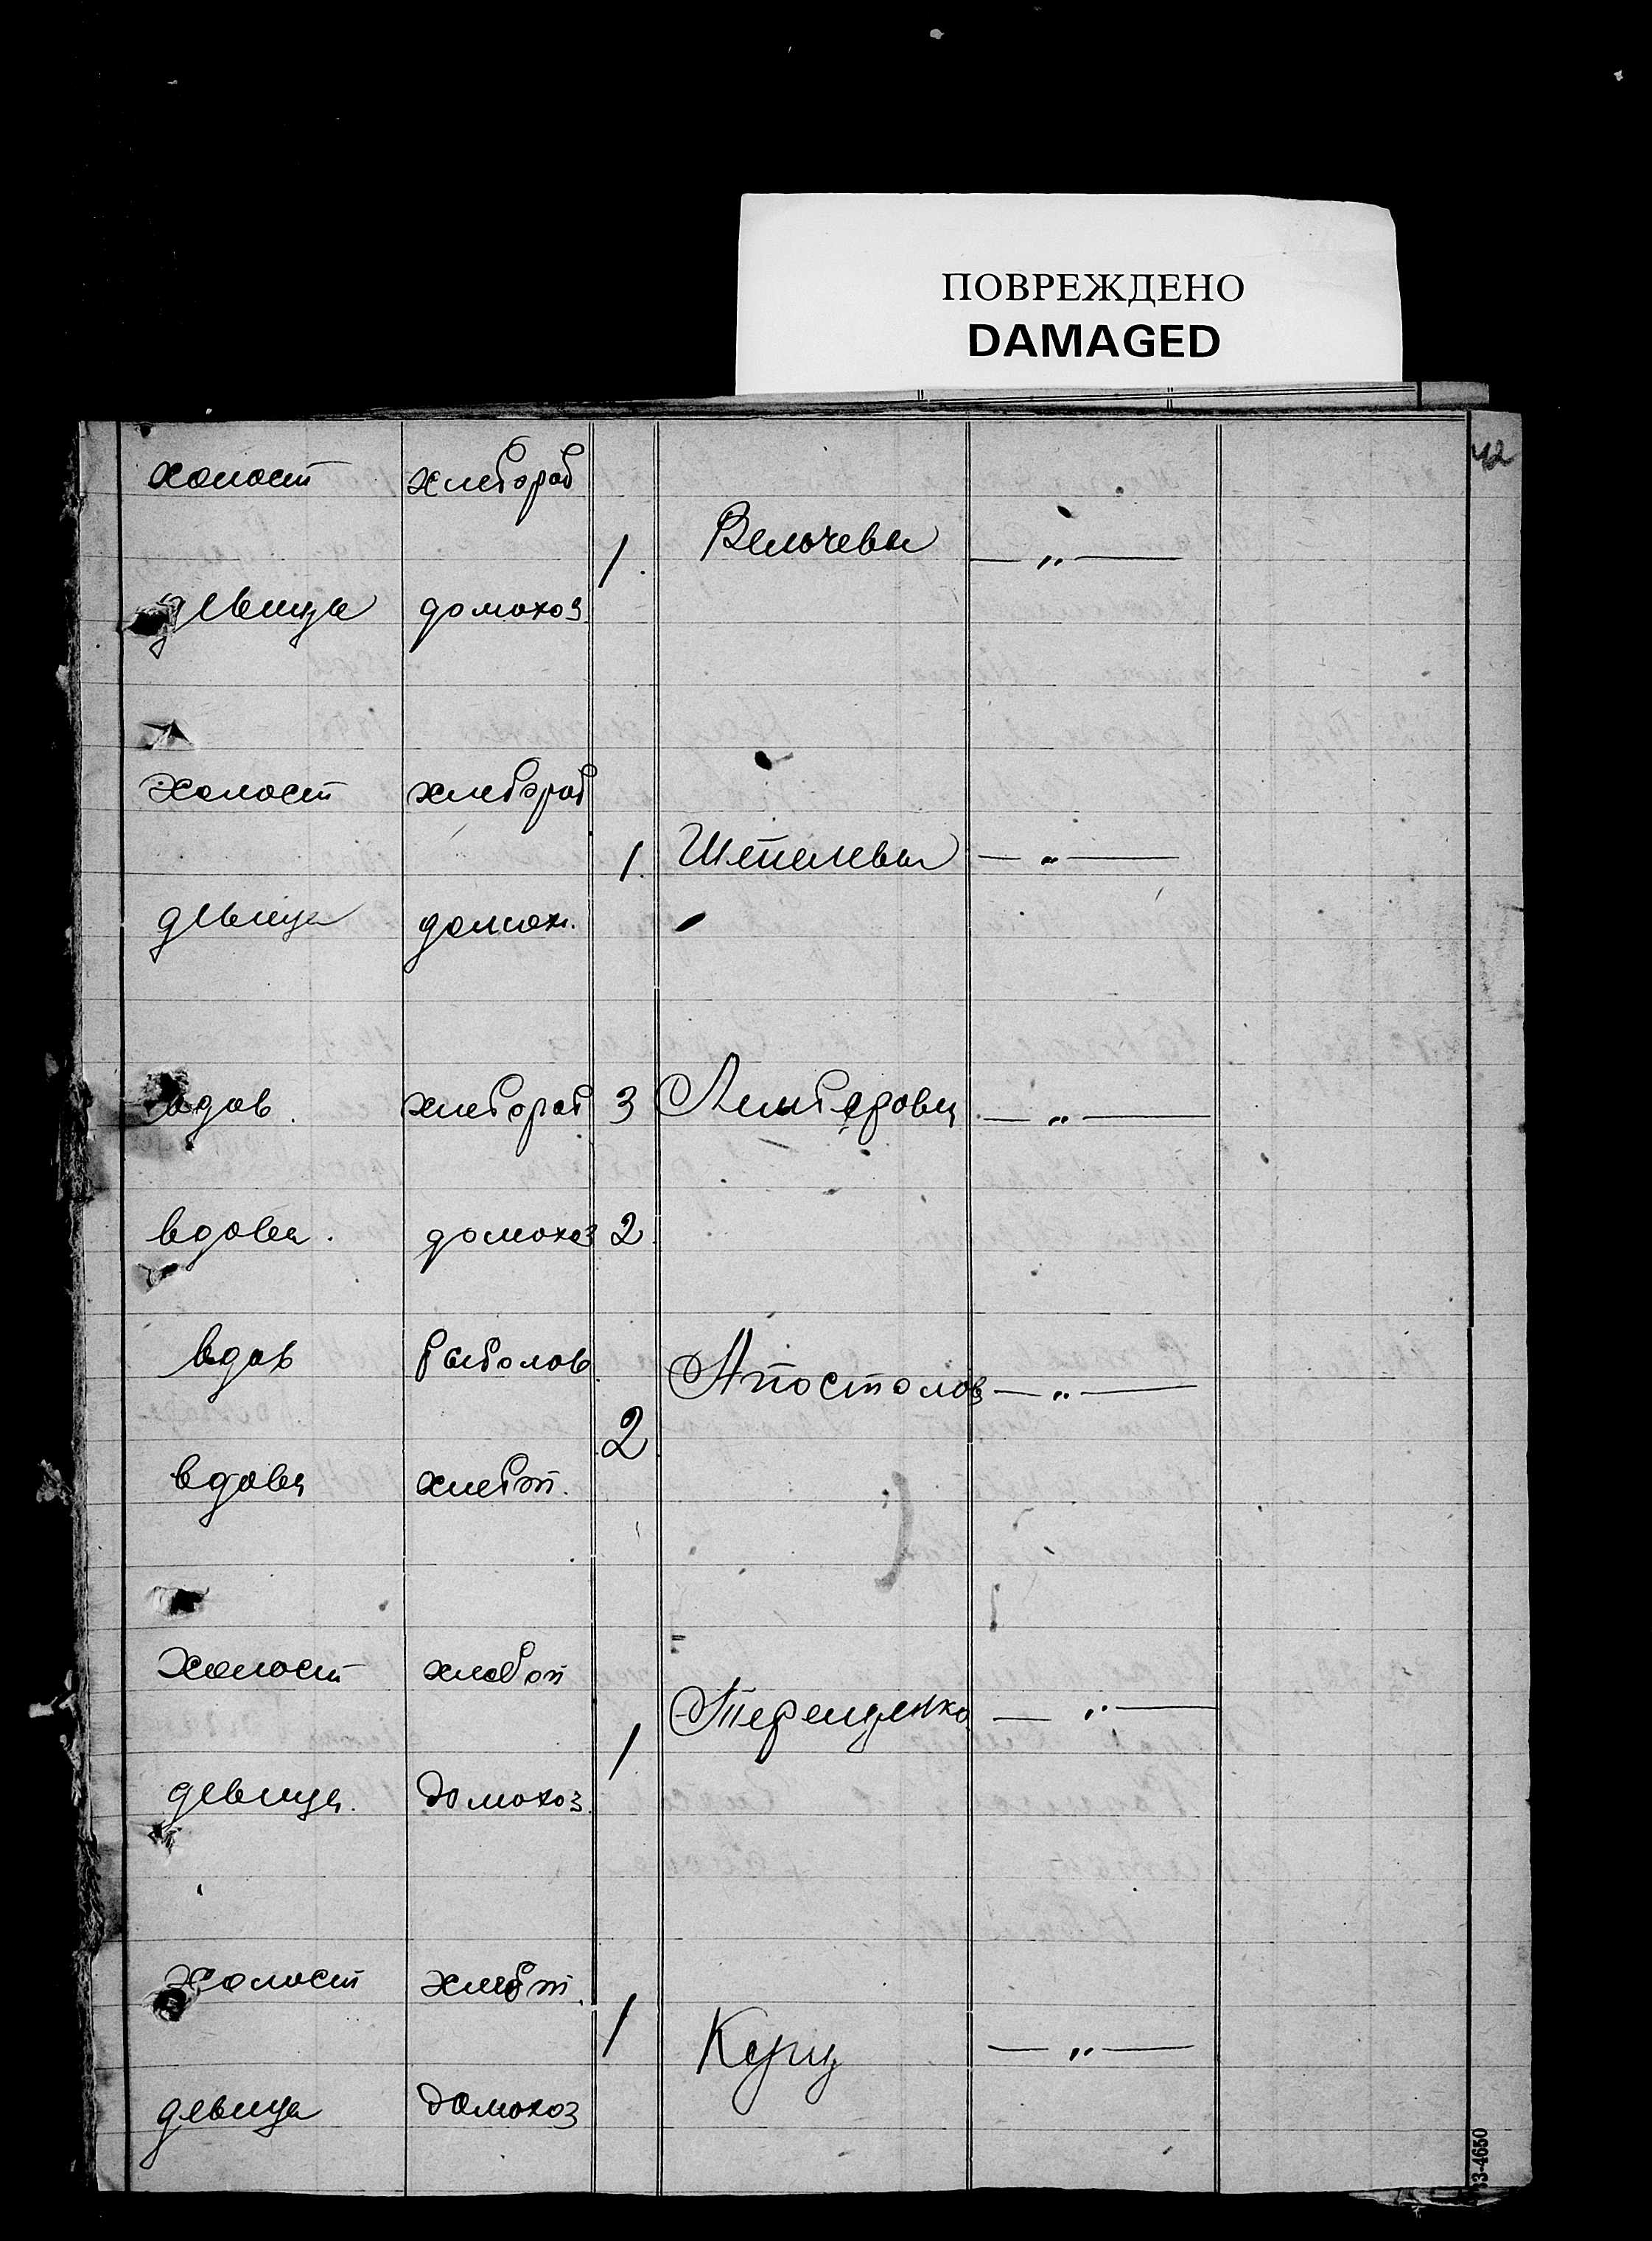 ПОВРЕЖДЕНО
DAMAGED
42
холост хлебораб
1. Вельчевы — „ —
девица домохоз.
холост хлебораб
1. Шепелевы — „ —
девица домох.
вдов. хлебораб 3 — „ —
вдова. домохоз 2.
вдов рыболов. Апостолов — „ —
2.
вдова хлебоп.
холост хлебоп
Терещенко — „ —
1.
девица. домохоз.
холост хлебоп.
1 Курц — „ —
девица домохоз
33-4650